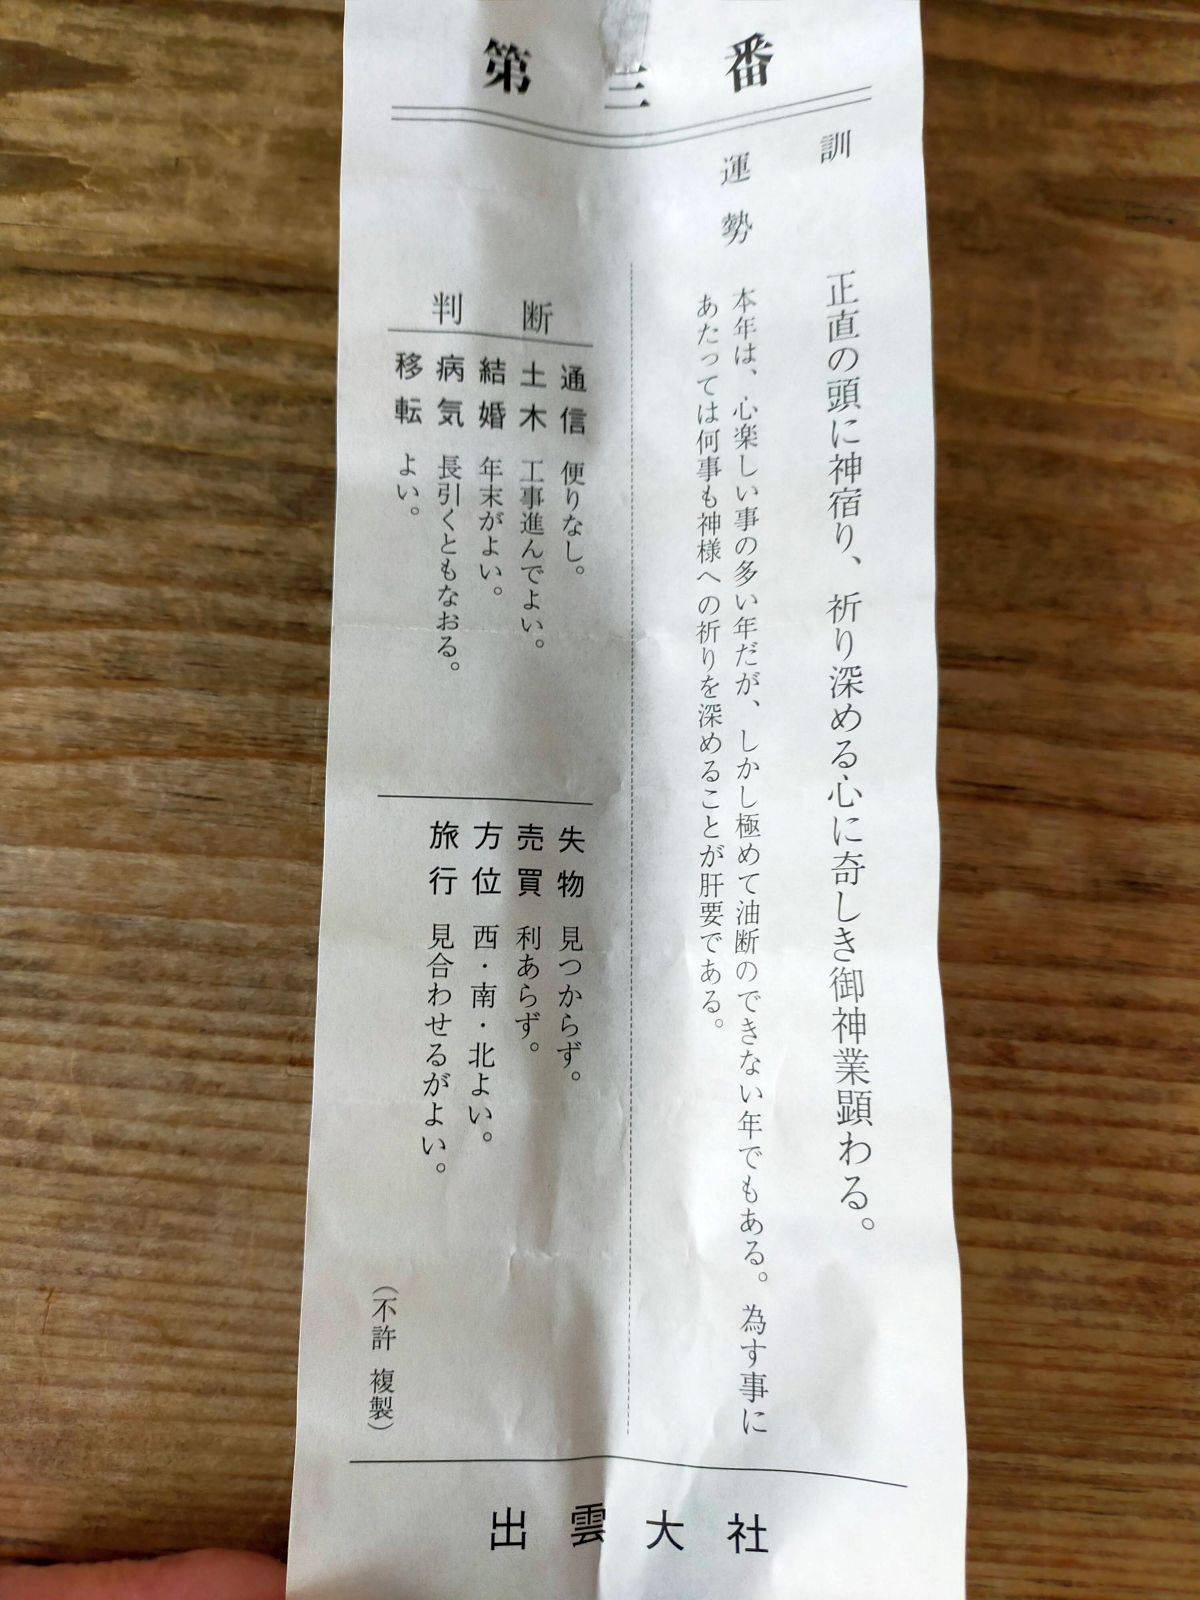 第三番
訓
正直の頭に神宿り、祈り深める心に奇しき御神業顕わる。
運勢
本年は、心楽しい事の多い年だが、しかし極めて油断のできない年でもある。為す事に
あたっては何事も神様への祈りを深めることが肝要である。
判断
通信 便りなし。
土木 工事進んでよい。
結婚 年末がよい。
病気 長引くともなおる。
移転 よい。
失物 見つからず。
売買 利あらず。
方位 西・南・北よい。
旅行 見合わせるがよい。
(不許 複製)
出雲大社